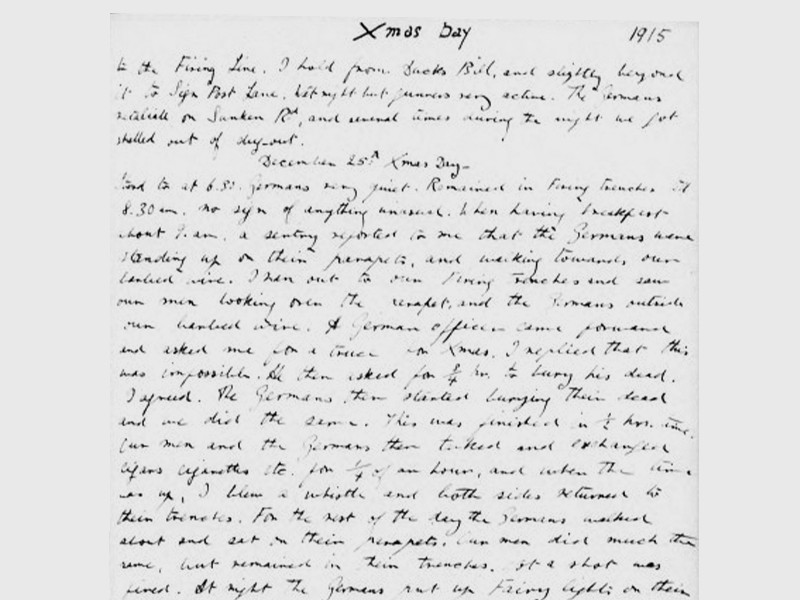 Xmas Day 1915
to the Firing Line. I hold from Ducks Bill, and slightly beyond
it to Sign Post Lane. Wet night but gunners very active. The Germans
retaliate on Sunken Rd, and several times during the night we got
shelled out of dug-out.
December 25th Xmas Day-
Stood to at 6.30. Germans very quiet. Remained in Firing trenches til
8.30 am. no sign of anything unusual. When having breakfast
about 9. am. a sentry reported to me that the Germans were
standing up on their parapets, and walking towards our
barbed wire. I ran out to our Firing trenches and saw
our men looking over the parapet, and the Germans outside
our barbed wire. A German officer came forward
and asked me for a truce for Xmas. I replied that this
was impossible. He then asked for ¾ hr. to bury his dead.
I agreed. The Germans then started burying their dead
and we did the same. This was finished in ½ hrs. time.
Our men and the Germans then talked and exchanged
cigars cigarettes etc. for ¼ of an hour, and when the time
was up, I blew a whistle and both sides returned to
their trenches. For the rest of the day the Germans walked
about and sat on their parapets. Our men did much the
same, but remained in their trenches. Not a shot was
fired. At night the Germans put up Fairy lights on their